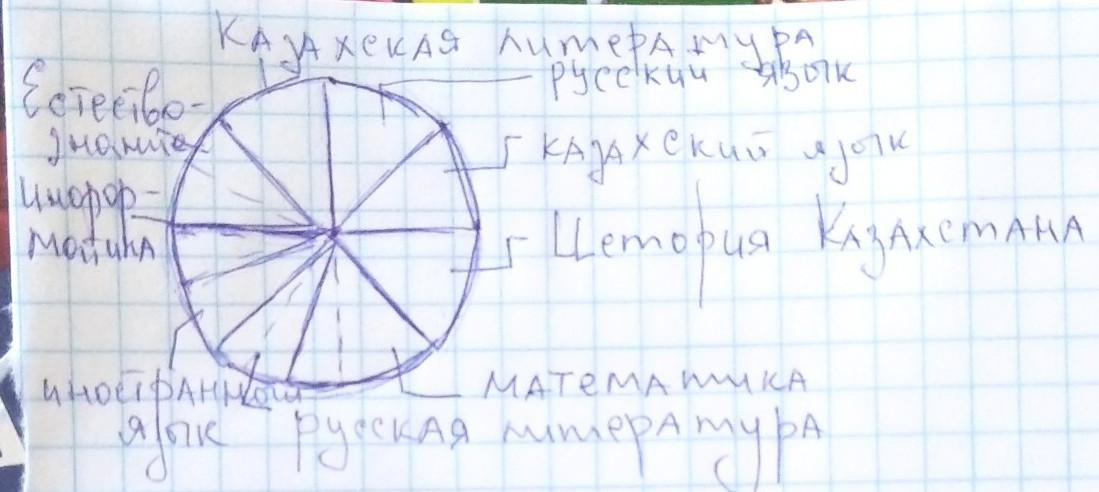 Казахская литература
русский язык
Естество-
знание
казахский язык
Инфор-
матика
История Казахстана
иностранный
язык
математика
русская литература